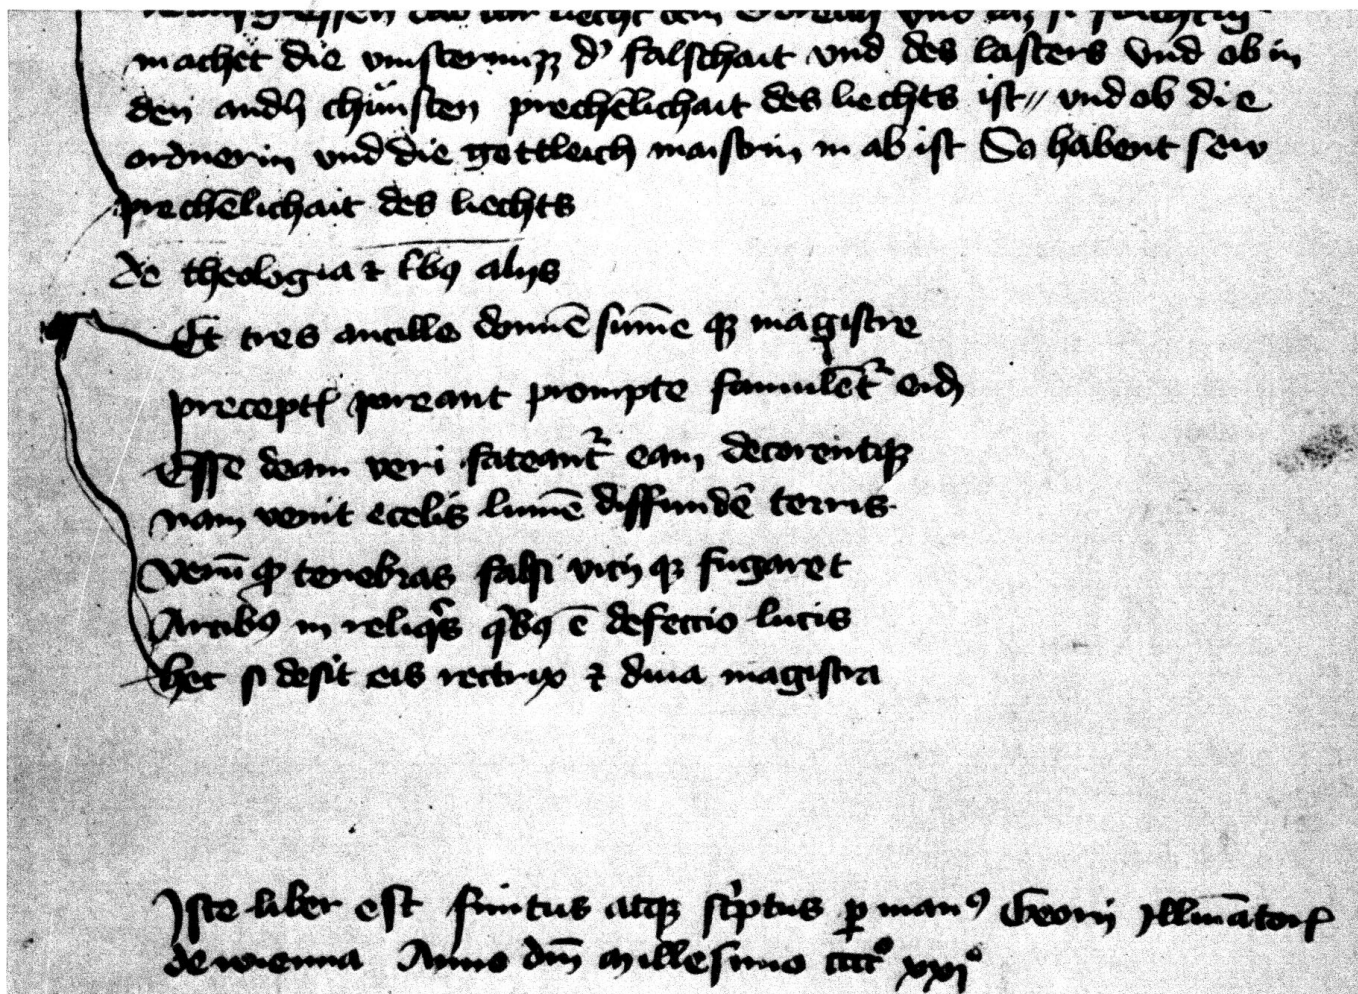 machet die vinsternuzz d' falschait vnd des lasters Vnd ob in
den andn chünsten prechēlichait des liechts ist // vnd ob die
ordnerin vnd die gottleich maistrin in ab ist So habent sew
prechēlichait des liechts
De theologia et tribus alijs
Et tres ancille domīe sūme qꝫ magistre
precept pareant prompte famulēt' eidē
Esse deam veri fateant' eam decorentqꝫ
nam venit e celis lumē diffundē terris
Verū ꝙ tenebras falsi vicij qꝫ fugaret
Artibꝰ in reliqⁱs qⁱbꝰ ē defectio lucis
hec si desit eis rectrix et diua magistra
Iste liber est finitus atqꝫ scⁱptus ꝑ manꝰ Georij Illuīatoris
de wienna Anno dm̄ Millesimo cccc° xxj°